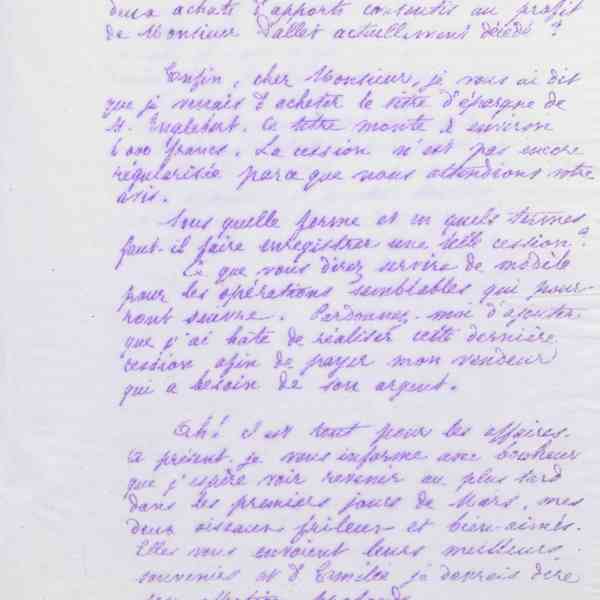 deux achats d'apports consentis au profit
de Monsieur Pallet actuellement décédé ?
Enfin, cher Monsieur, je vous ai dit
que je venais d'acheter le titre d'épargne de
M. Englebert. Ce titre monte à environ
6 000 francs. La cession n'est pas encore
régularisée parce que nous attendions votre
avis.
Sous quelle forme et en quels termes
faut-il faire enregistrer une telle cession ?
Ce que vous direz servira de modèle
pour les opérations semblables qui pour-
ront suivre. Pardonnez-moi d'ajouter
que j'ai hâte de réaliser cette dernière
cession afin de payer mon vendeur
qui a besoin de son argent.
Eh! c'est tout pour les affaires.
A présent je vous informe avec bonheur
que j'espère voir revenir au plus tard
dans les premiers jours de Mars, mes
deux oiseaux frileux et bien-aimés.
Elles vous envoient leurs meilleurs
souvenirs et d'Emilie je devrais dire
son affection profonde